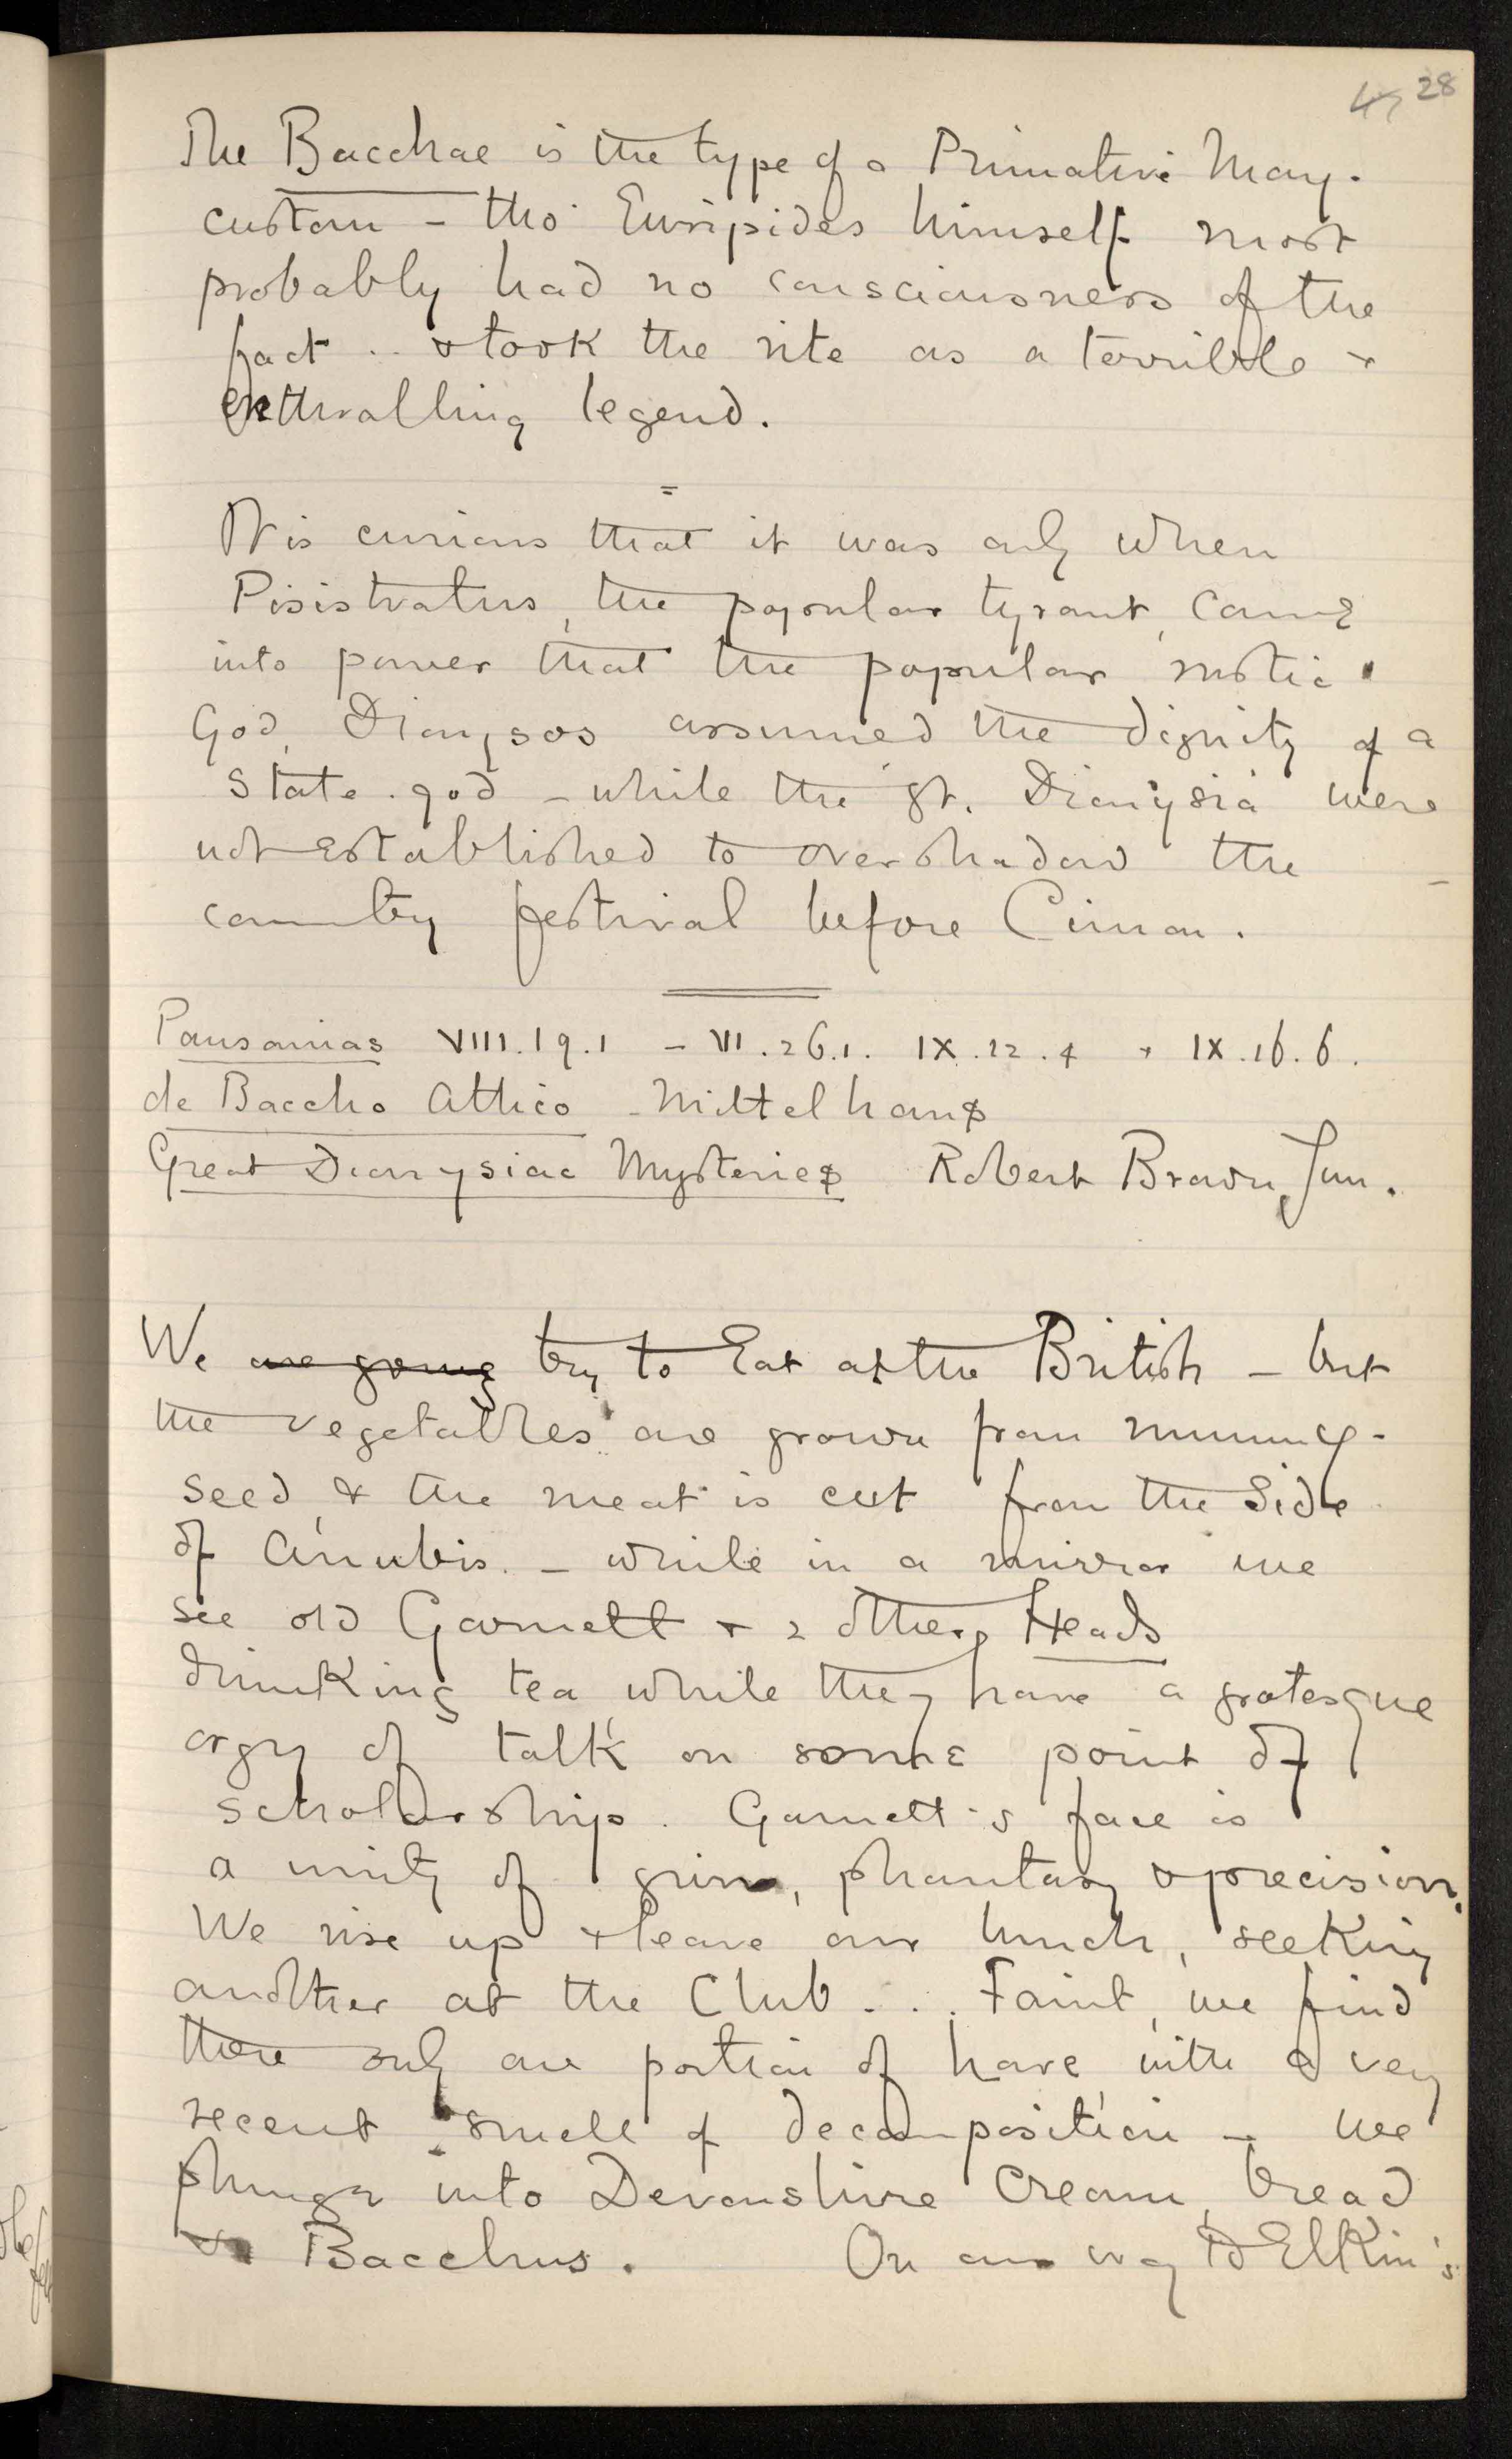 28
The Bacchae is the type of a Primative May-
custom - tho' Euripides himself most
probably had no consciousness of the
fact .. & took the rite as a terrible &
enthralling legend.
=
It is curious that it was only when
Pisistratus, the popular tyrant, came
into power that the popular rustic
God, Dionysos assumed the dignity of a
State-god - while the gt. Dionysia were
not established to overshadow the
country festival before Cimon.
Pausanias VIII.19.1 - VI.26.1. IX.12.4 + IX.16.6.
de Baccho Attico - Mittelhaus
Great Dionysiac Mysteries Robert Brown, Jun.
We are going try to Eat at the British - but
the vegetables are grown from mummy-
seed, & the meat is cut from the side
of Anubis. - while in a mirror we
see old Garnett & 2 other Heads
drinking tea while they have a grotesque
orgy of talk on some point of
scholarship. Garnett's face is
a unity of grin, phantasy & precision.
We rise up & leave our lunch, seeking
another at the Club . . . Faint, we find
there only one portion of hare with a very
recent smell of decomposition - we
plunge into Devonshire cream, bread
& Bacchus. On our way to Elkin's